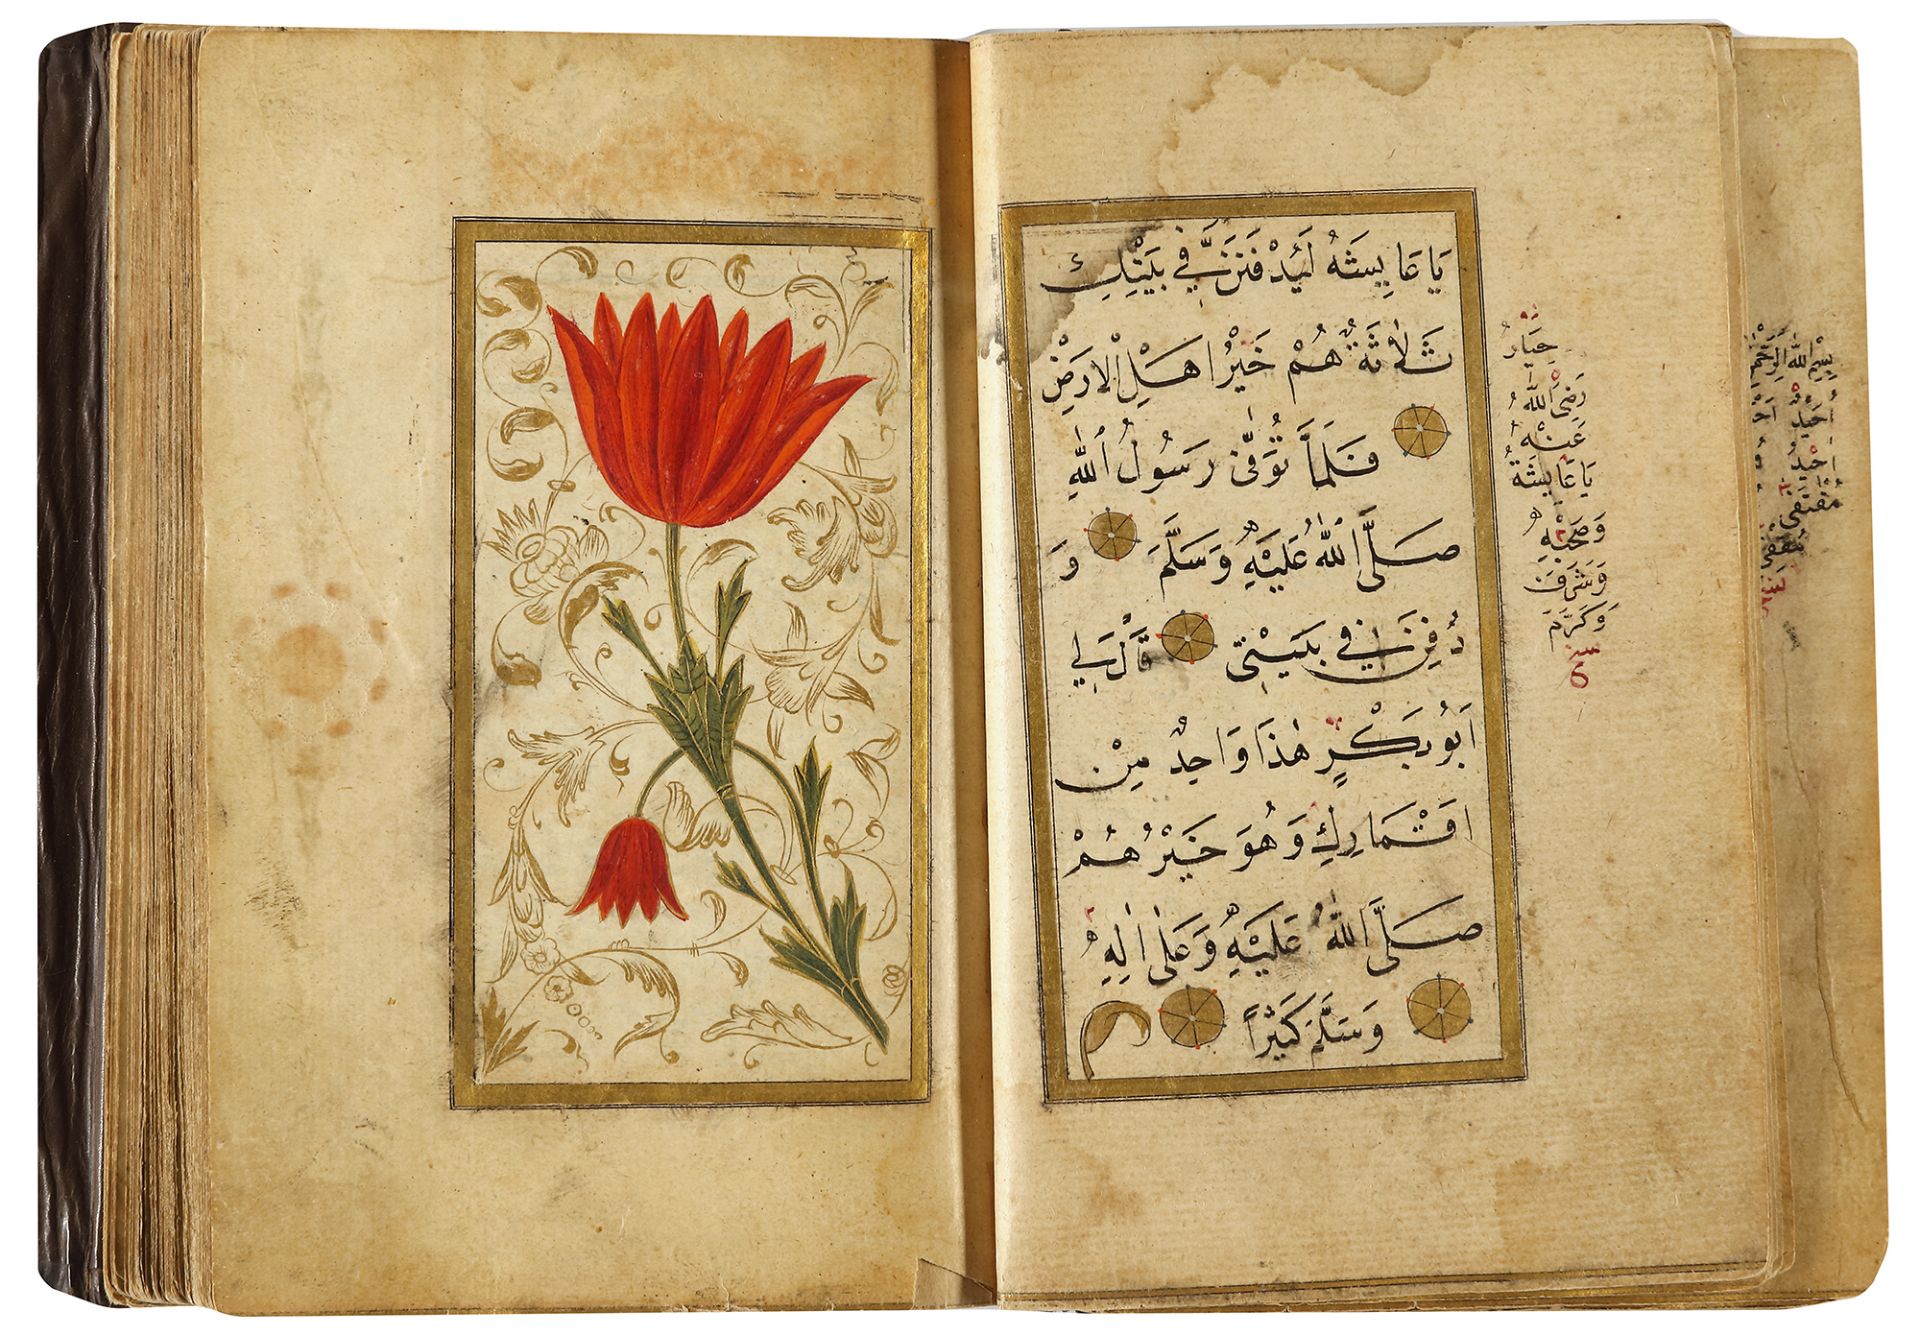 يَا عَايِشَةُ لَيُدْفَنَنَّ فِي بَيْتِكِ
ثَلَاثَةٌ هُمْ خَيْرُ اَهْلِ الْاَرْضِ
فَلَمَّا تُوُفِّىَ رَسُولُ اللّٰهِ
صَلَّى اللّٰهُ عَلَيْهِ وَسَلَّمَ وَ
دُفِنَ فِي بَيْتِى قَالَ لِي
اَبُو بَكْرٍ هٰذَا وَاحِدٌ مِنْ
اَقْمَارِكِ وَهُوَ خَيْرُهُمْ
صَلَّى اللّٰهُ عَلَيْهِ وَعَلٰى اٰلِهِ
وَسَلَّمَ كَثِيرًا
خِيَارُ
رَضِىَ اللّٰهُ
عَنْهُ
يَا عَايِشَةُ
وَصَحْبِهِ
وَشَرَّفَ
وَكَرَّمَ
بِسْمِ اللّٰهِ
اُحِيدُ
مُقْتَفِى